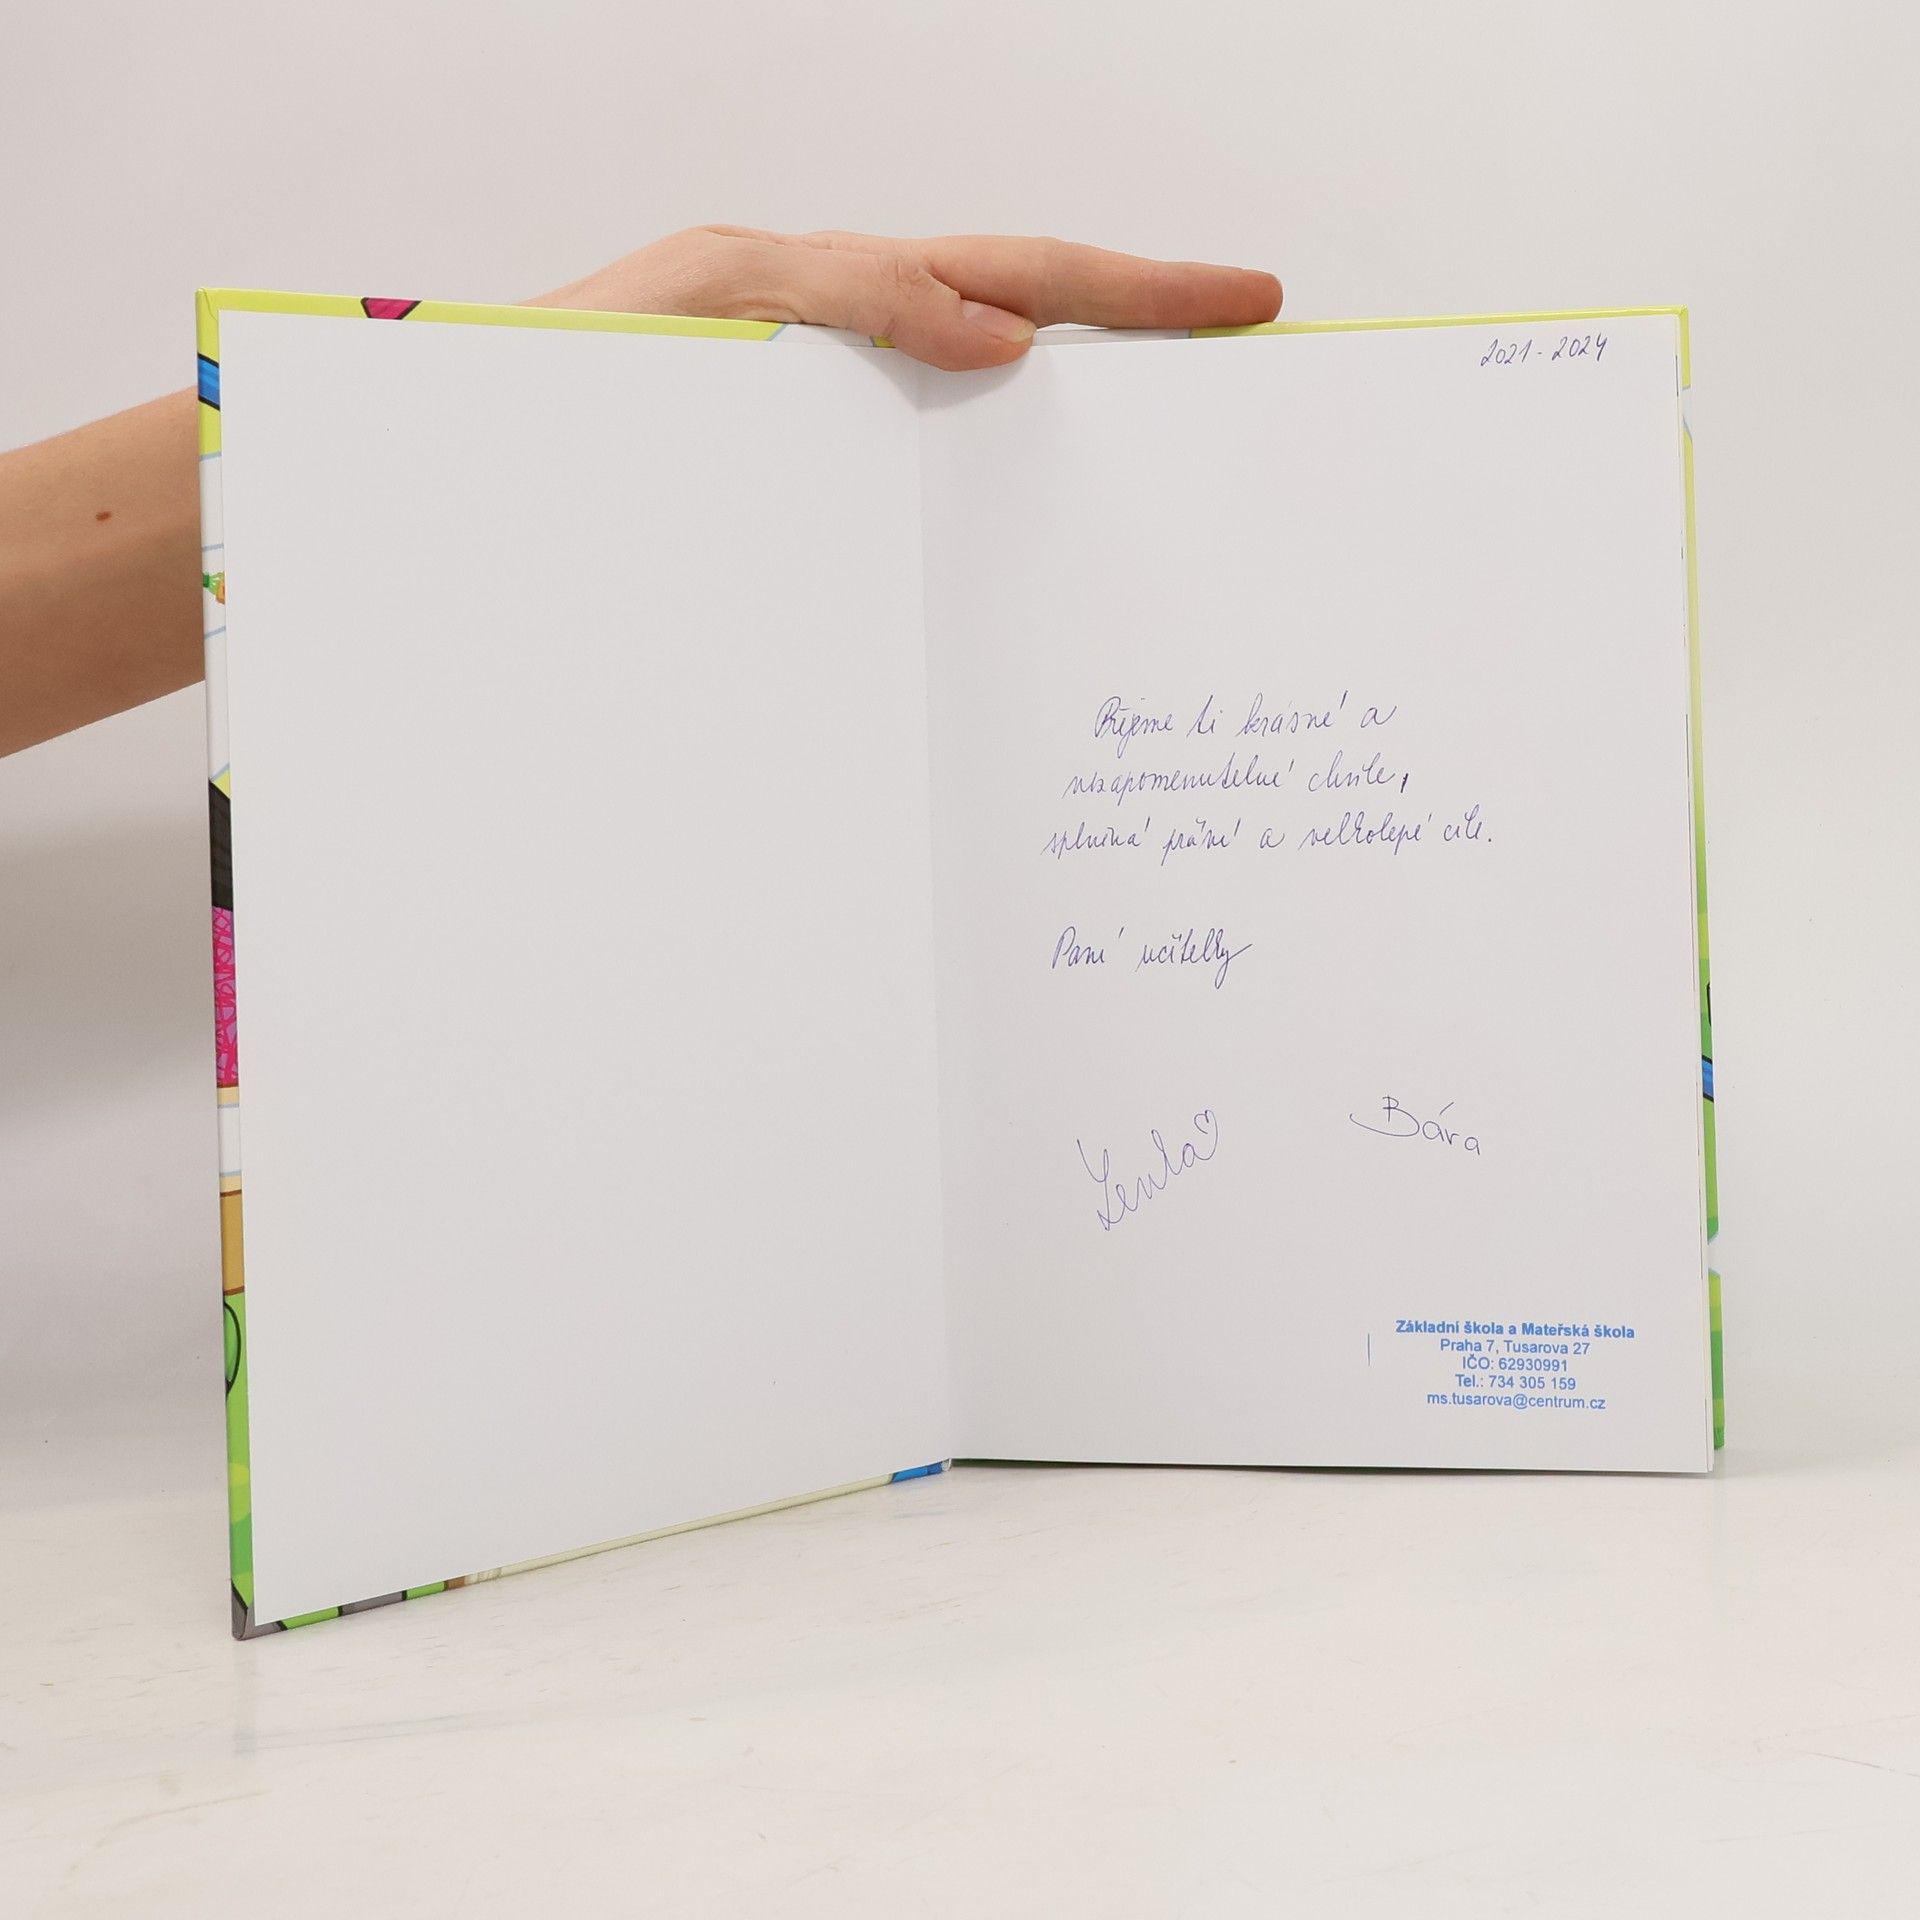 2021 - 2024
Přejeme ti krásné a
nezapomenutelné chvíle,
splněná přání a velkolepé cíle.
Paní učitelky
Lenka
Bára
Základní škola a Mateřská škola
Praha 7, Tusarova 27
IČO: 62930991
Tel.: 734 305 159
ms.tusarova@centrum.cz